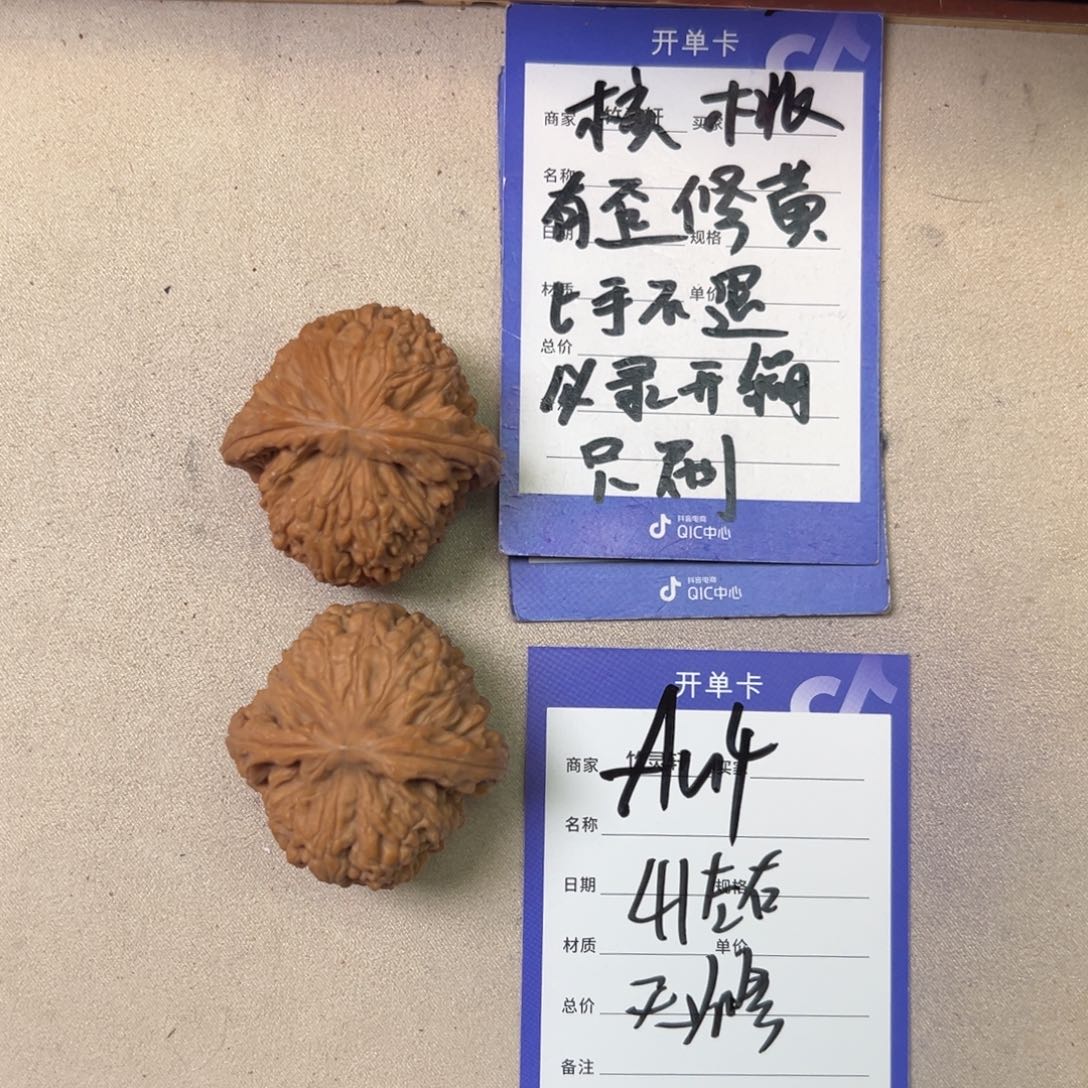 开单卡
商家 竹灵轩 买家
核 桃
名称
有歪修黄
日期 规格
材质 单价
上手不退
总价
必录开箱
只刷
抖音电商
QIC中心
抖音电商
QIC中心
开单卡
商家 竹灵轩 买家
Au4
名称
日期 规格
41左右
材质 单价
无修
总价
备注